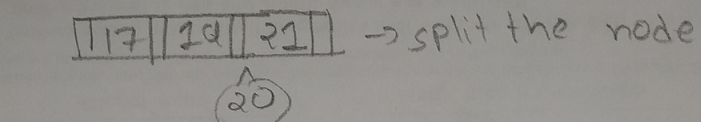 17 19 21 → split the node
20